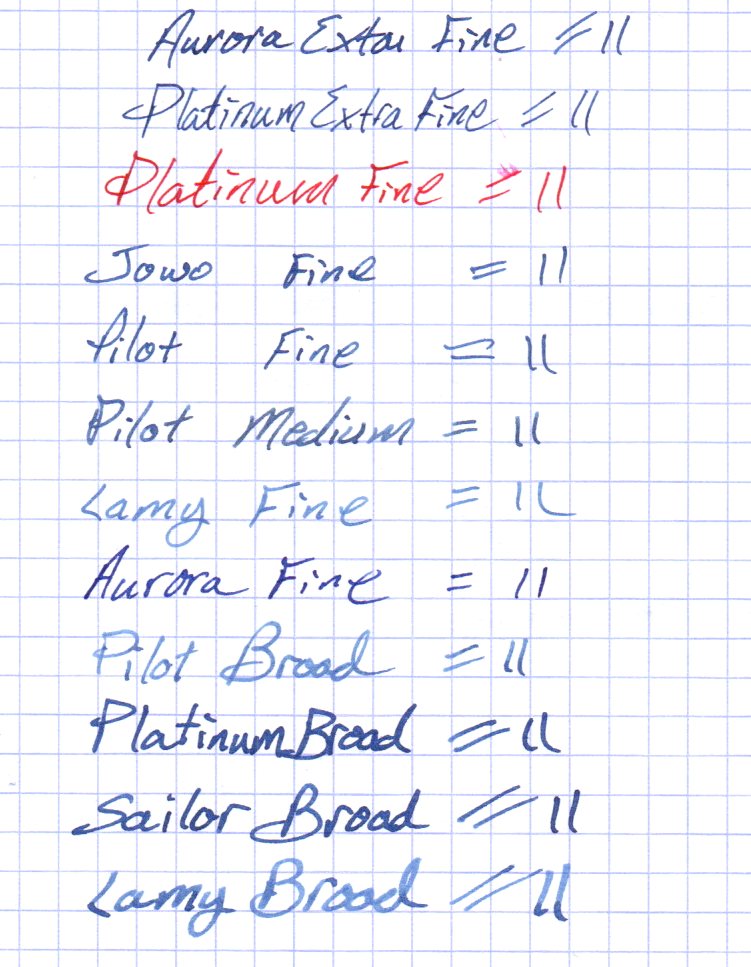 Aurora Extra Fine = 11
Platinum Extra Fine = 11
Platinum Fine = 11
Jowo Fine = 11
Pilot Fine = 11
Pilot Medium = 11
Lamy Fine = 11
Aurora Fine = 11
Pilot Broad = 11
Platinum Broad = 11
Sailor Broad = 11
Lamy Broad = 11